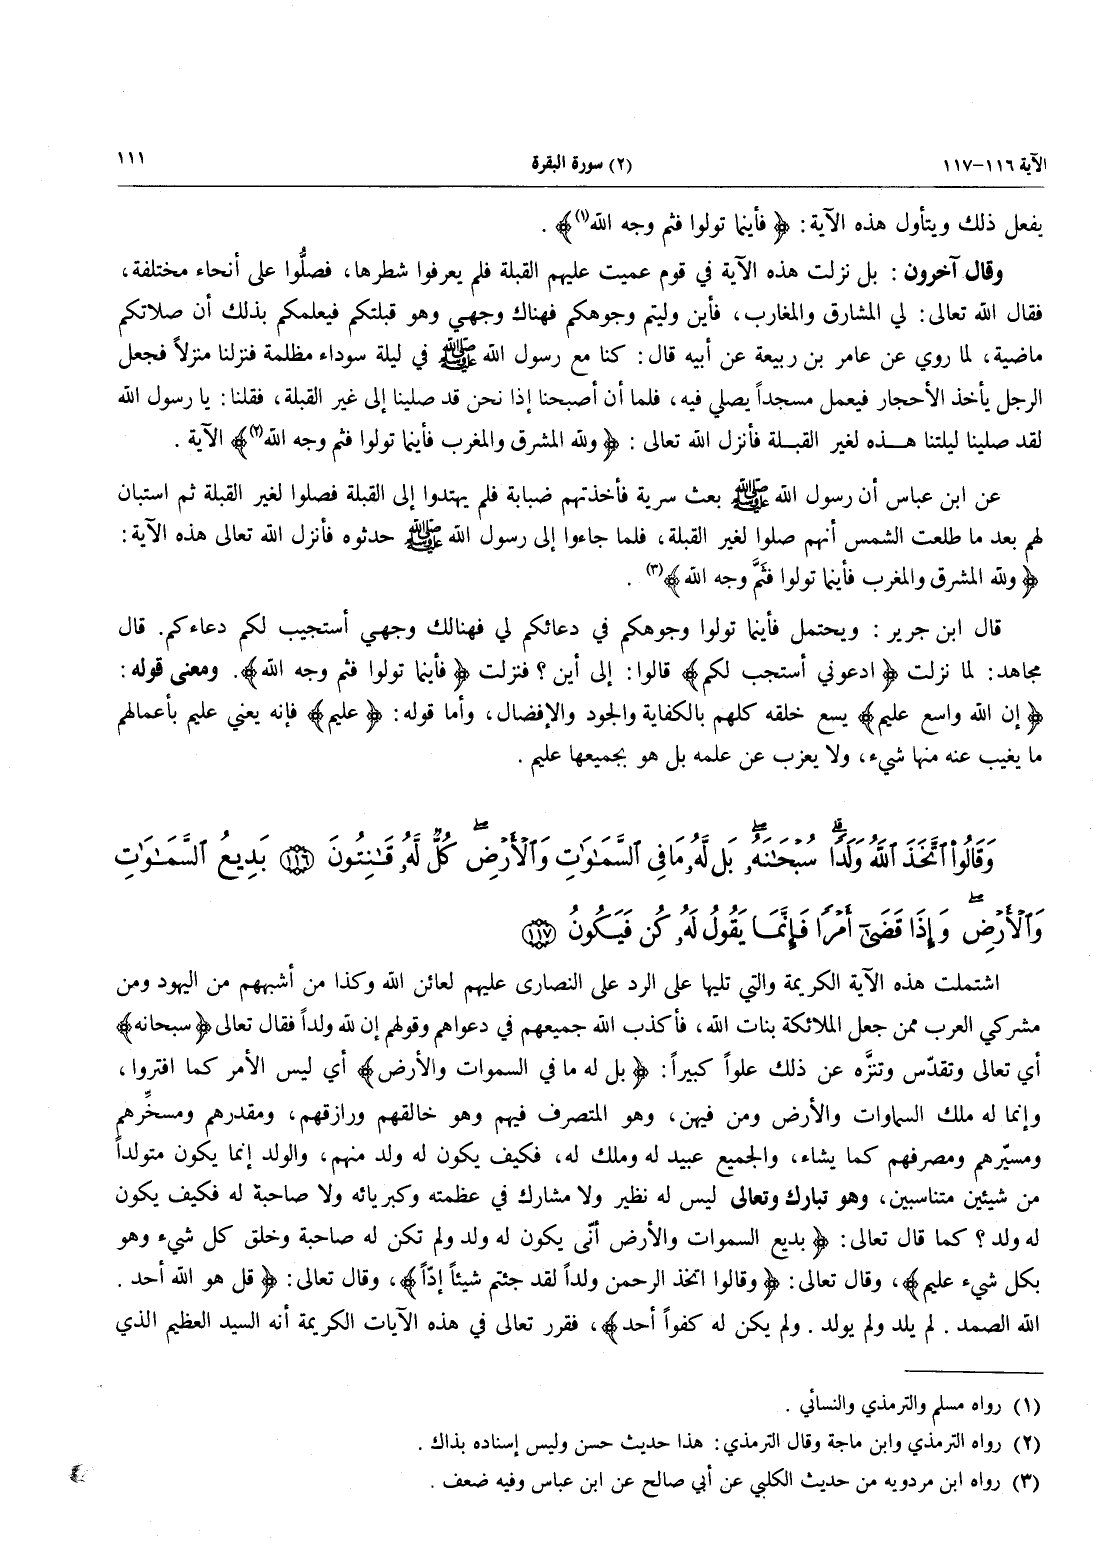 الآية ١١٦-١١٧
(٢) سورة البقرة
١١١
يفعل ذلك ويتأول هذه الآية: ﴿ فأينما تولوا فثم وجه الله(١)﴾ .
وقال آخرون : بل نزلت هذه الآية في قوم عميت عليهم القبلة فلم يعرفوا شطرها، فصلُّوا على أنحاء مختلفة،
فقال الله تعالى: لي المشارق والمغارب، فأين وليتم وجوهكم فهناك وجهي وهو قبلتكم فيعلمكم بذلك أن صلاتكم
ماضية، لما روي عن عامر بن ربيعة عن أبيه قال: كنا مع رسول الله ﷺ في ليلة سوداء مظلمة فنزلنا منزلاً فجعل
الرجل يأخذ الأحجار فيعمل مسجداً يصلي فيه، فلما أن أصبحنا إذا نحن قد صلينا إلى غير القبلة، فقلنا: يا رسول الله
لقد صلينا ليلتنا هـذه لغير القبـلة فأنزل الله تعالى : ﴿ ولله المشرق والمغرب فأينما تولوا فثم وجه الله(٢)﴾ الآية .
عن ابن عباس أن رسول الله ﷺ بعث سرية فأخذتهم ضبابة فلم يهتدوا إلى القبلة فصلوا لغير القبلة ثم استبان
لهم بعد ما طلعت الشمس أنهم صلوا لغير القبلة، فلما جاءوا إلى رسول الله ﷺ حدثوه فأنزل الله تعالى هذه الآية:
﴿ ولله المشرق والمغرب فأينما تولوا فثَمَّ وجه الله ﴾(٣) .
قال ابن جرير : ويحتمل فأينما تولوا وجوهكم في دعائكم لي فهنالك وجهي أستجيب لكم دعاءكم. قال
مجاهد: لما نزلت ﴿ ادعوني أستجب لكم﴾ قالوا: إلى أين ؟ فنزلت ﴿ فأينما تولوا فثم وجه الله ﴾. ومعنى قوله:
﴿ إن الله واسع عليم﴾ يسع خلقه كلهم بالكفاية والجود والإفضال، وأما قوله: ﴿ عليم﴾ فإنه يعني عليم بأعمالهم
ما يغيب عنه منها شيء، ولا يعزب عن علمه بل هو بجميعها عليم .
وَقَالُوا۟ ٱتَّخَذَ ٱللَّهُ وَلَدًۭا ۗ سُبْحَـٰنَهُۥ ۖ بَل لَّهُۥ مَا فِى ٱلسَّمَـٰوَٰتِ وَٱلْأَرْضِ ۖ كُلٌّۭ لَّهُۥ قَـٰنِتُونَ ١١٦ بَدِيعُ ٱلسَّمَـٰوَٰتِ
وَٱلْأَرْضِ ۖ وَإِذَا قَضَىٰٓ أَمْرًۭا فَإِنَّمَا يَقُولُ لَهُۥ كُن فَيَكُونُ ١١٧
اشتملت هذه الآية الكريمة والتي تليها على الرد على النصارى عليهم لعائن الله وكذا من أشبههم من اليهود ومن
مشركي العرب ممن جعل الملائكة بنات الله، فأكذب الله جميعهم في دعواهم وقولهم إن لله ولداً فقال تعالى ﴿سبحانه﴾
أي تعالى وتقدّس وتنزَّه عن ذلك علواً كبيراً: ﴿ بل له ما في السموات والأرض﴾ أي ليس الأمر كما افتروا،
وإنما له ملك السماوات والأرض ومن فيهن، وهو المتصرف فيهم وهو خالقهم ورازقهم، ومقدرهم ومسخِّرهم
ومسيّرهم ومصرفهم كما يشاء، والجميع عبيد له وملك له، فكيف يكون له ولد منهم، والولد إنما يكون متولداً
من شيئين متناسبين، وهو تبارك وتعالى ليس له نظير ولا مشارك في عظمته وكبريائه ولا صاحبة له فكيف يكون
له ولد ؟ كما قال تعالى: ﴿ بديع السموات والأرض أنّى يكون له ولد ولم تكن له صاحبة وخلق كل شيء وهو
بكل شيء عليم﴾، وقال تعالى: ﴿ وقالوا اتخذ الرحمن ولداً لقد جئتم شيئاً إدّاً﴾، وقال تعالى: ﴿ قل هو الله أحد .
الله الصمد . لم يلد ولم يولد . ولم يكن له كفواً أحد﴾، فقرر تعالى في هذه الآيات الكريمة أنه السيد العظيم الذي
(١) رواه مسلم والترمذي والنسائي .
(٢) رواه الترمذي وابن ماجة وقال الترمذي: هذا حديث حسن وليس إسناده بذاك .
(٣) رواه ابن مردويه من حديث الكلبي عن أبي صالح عن ابن عباس وفيه ضعف .